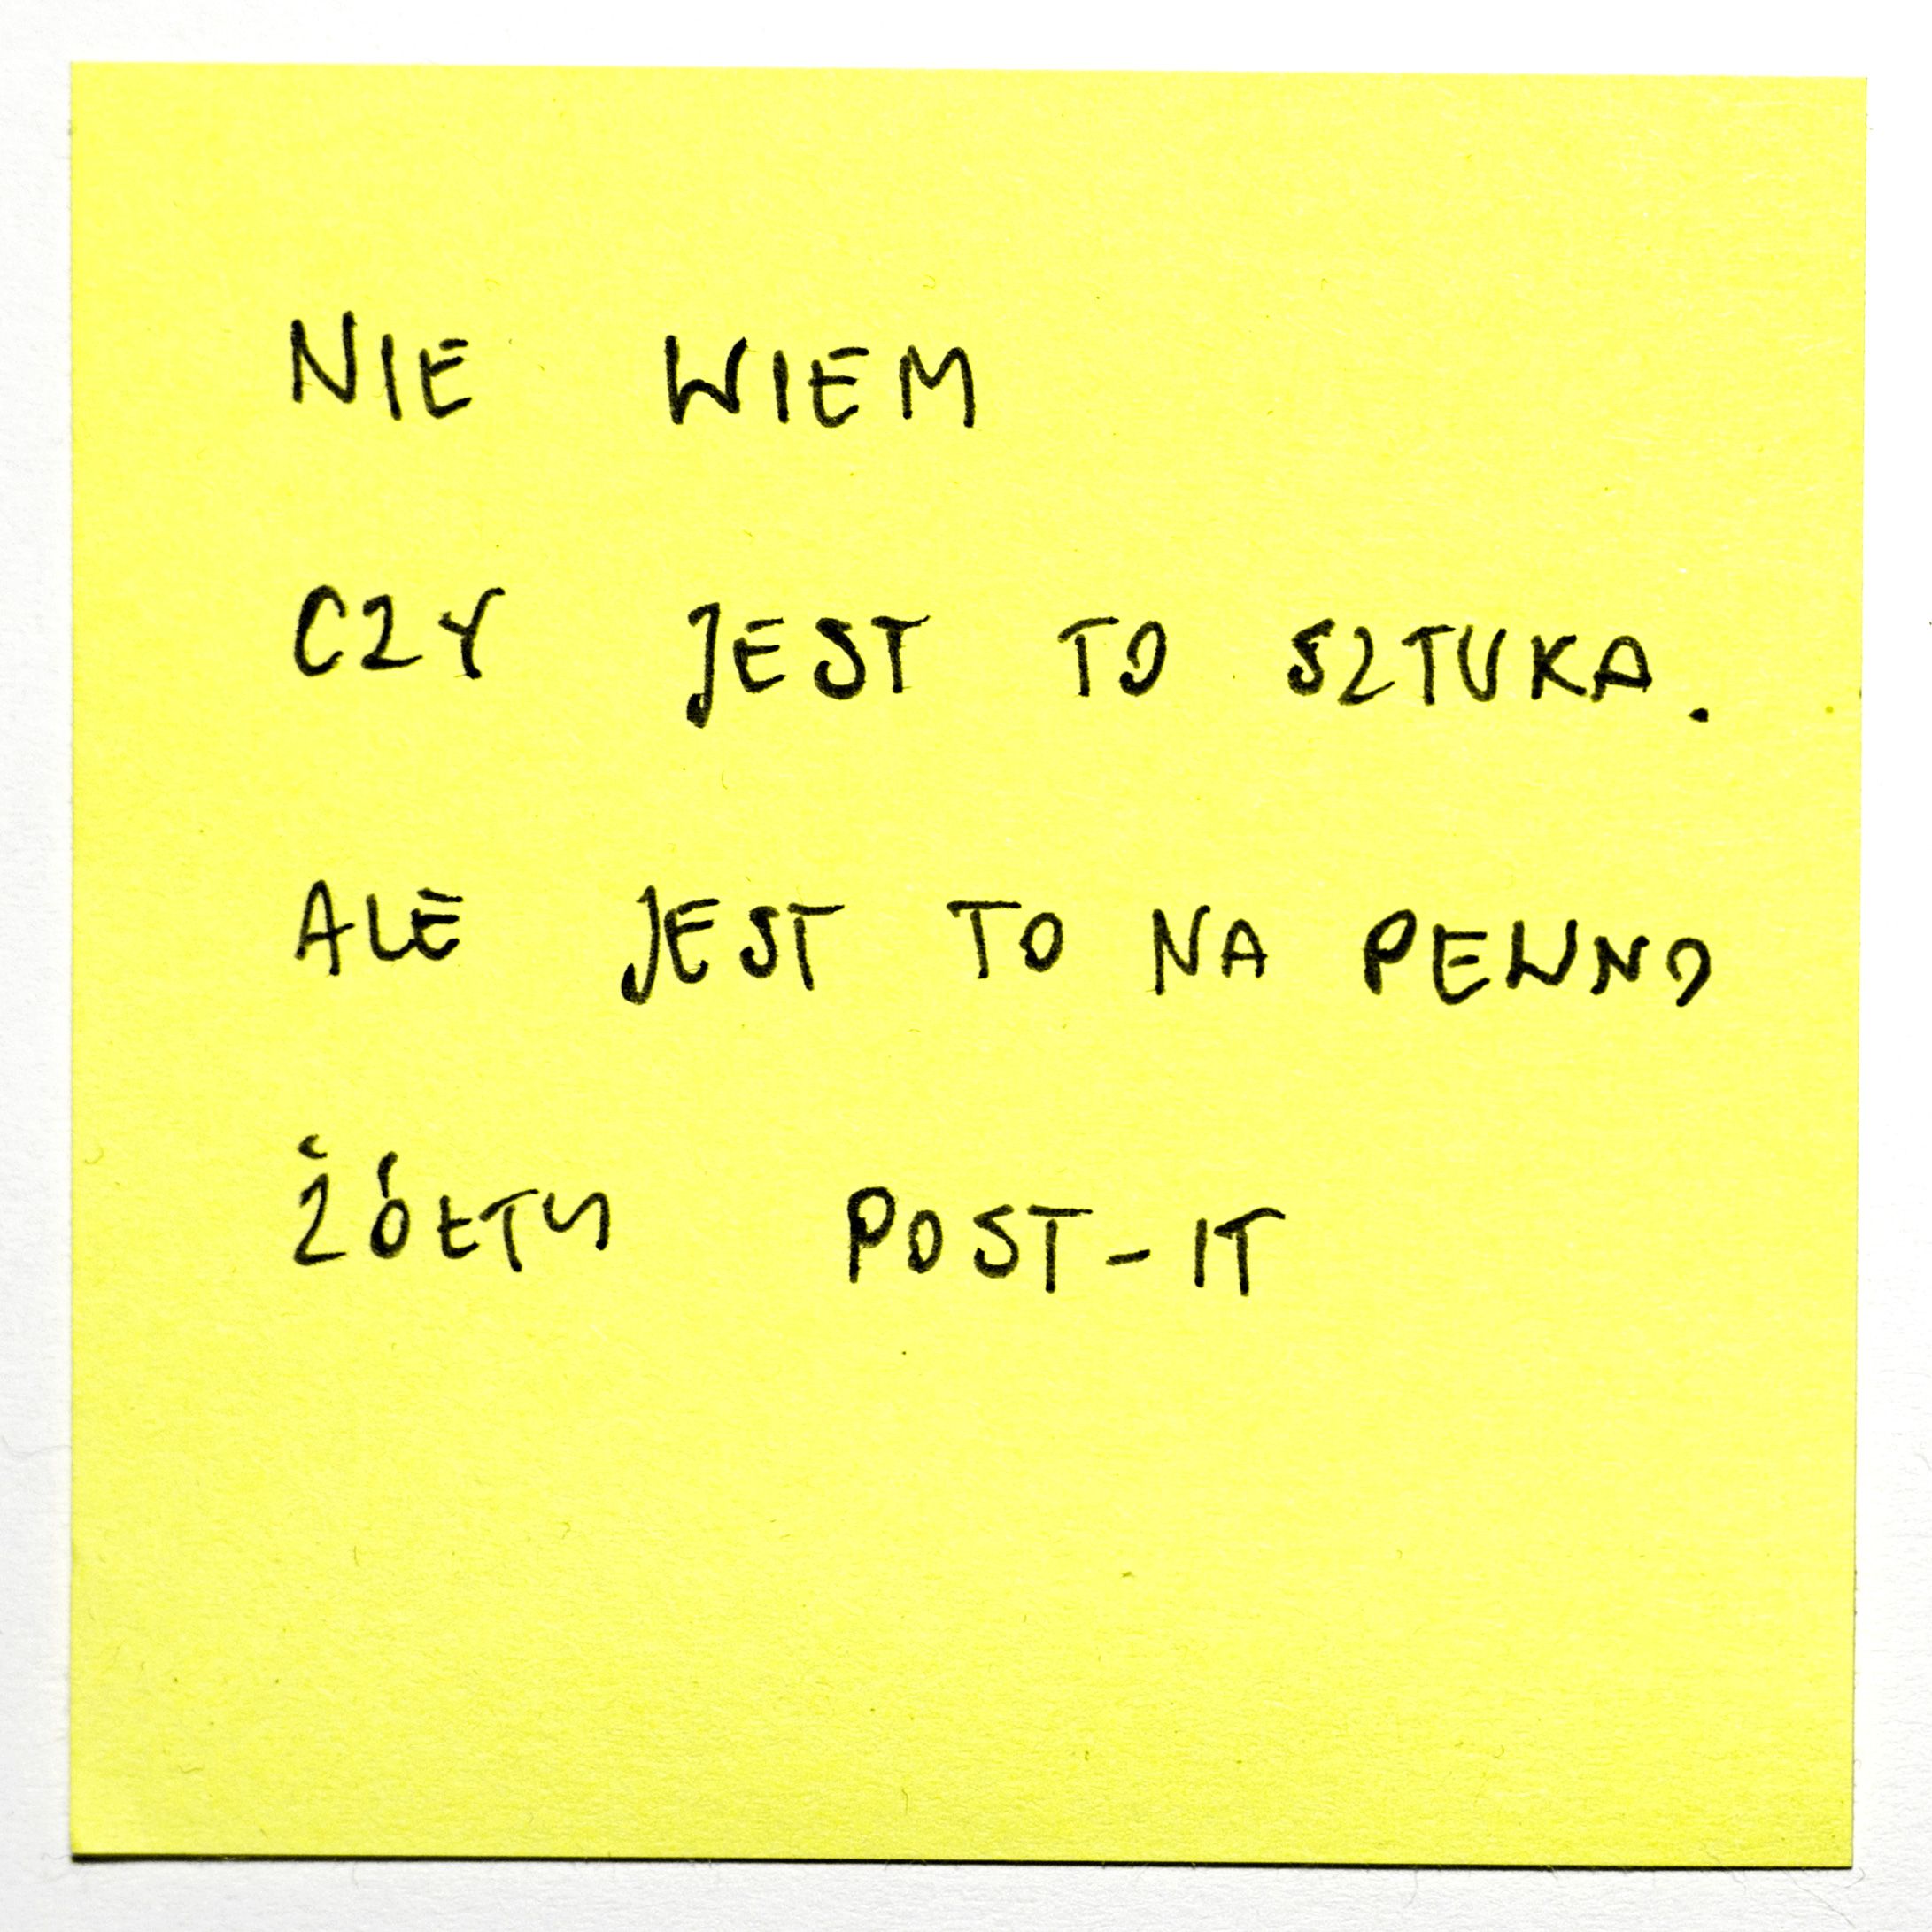 NIE WIEM
CZY JEST TO SZTUKA.
ALE JEST TO NA PEWNO
ŻÓŁTY POST-IT